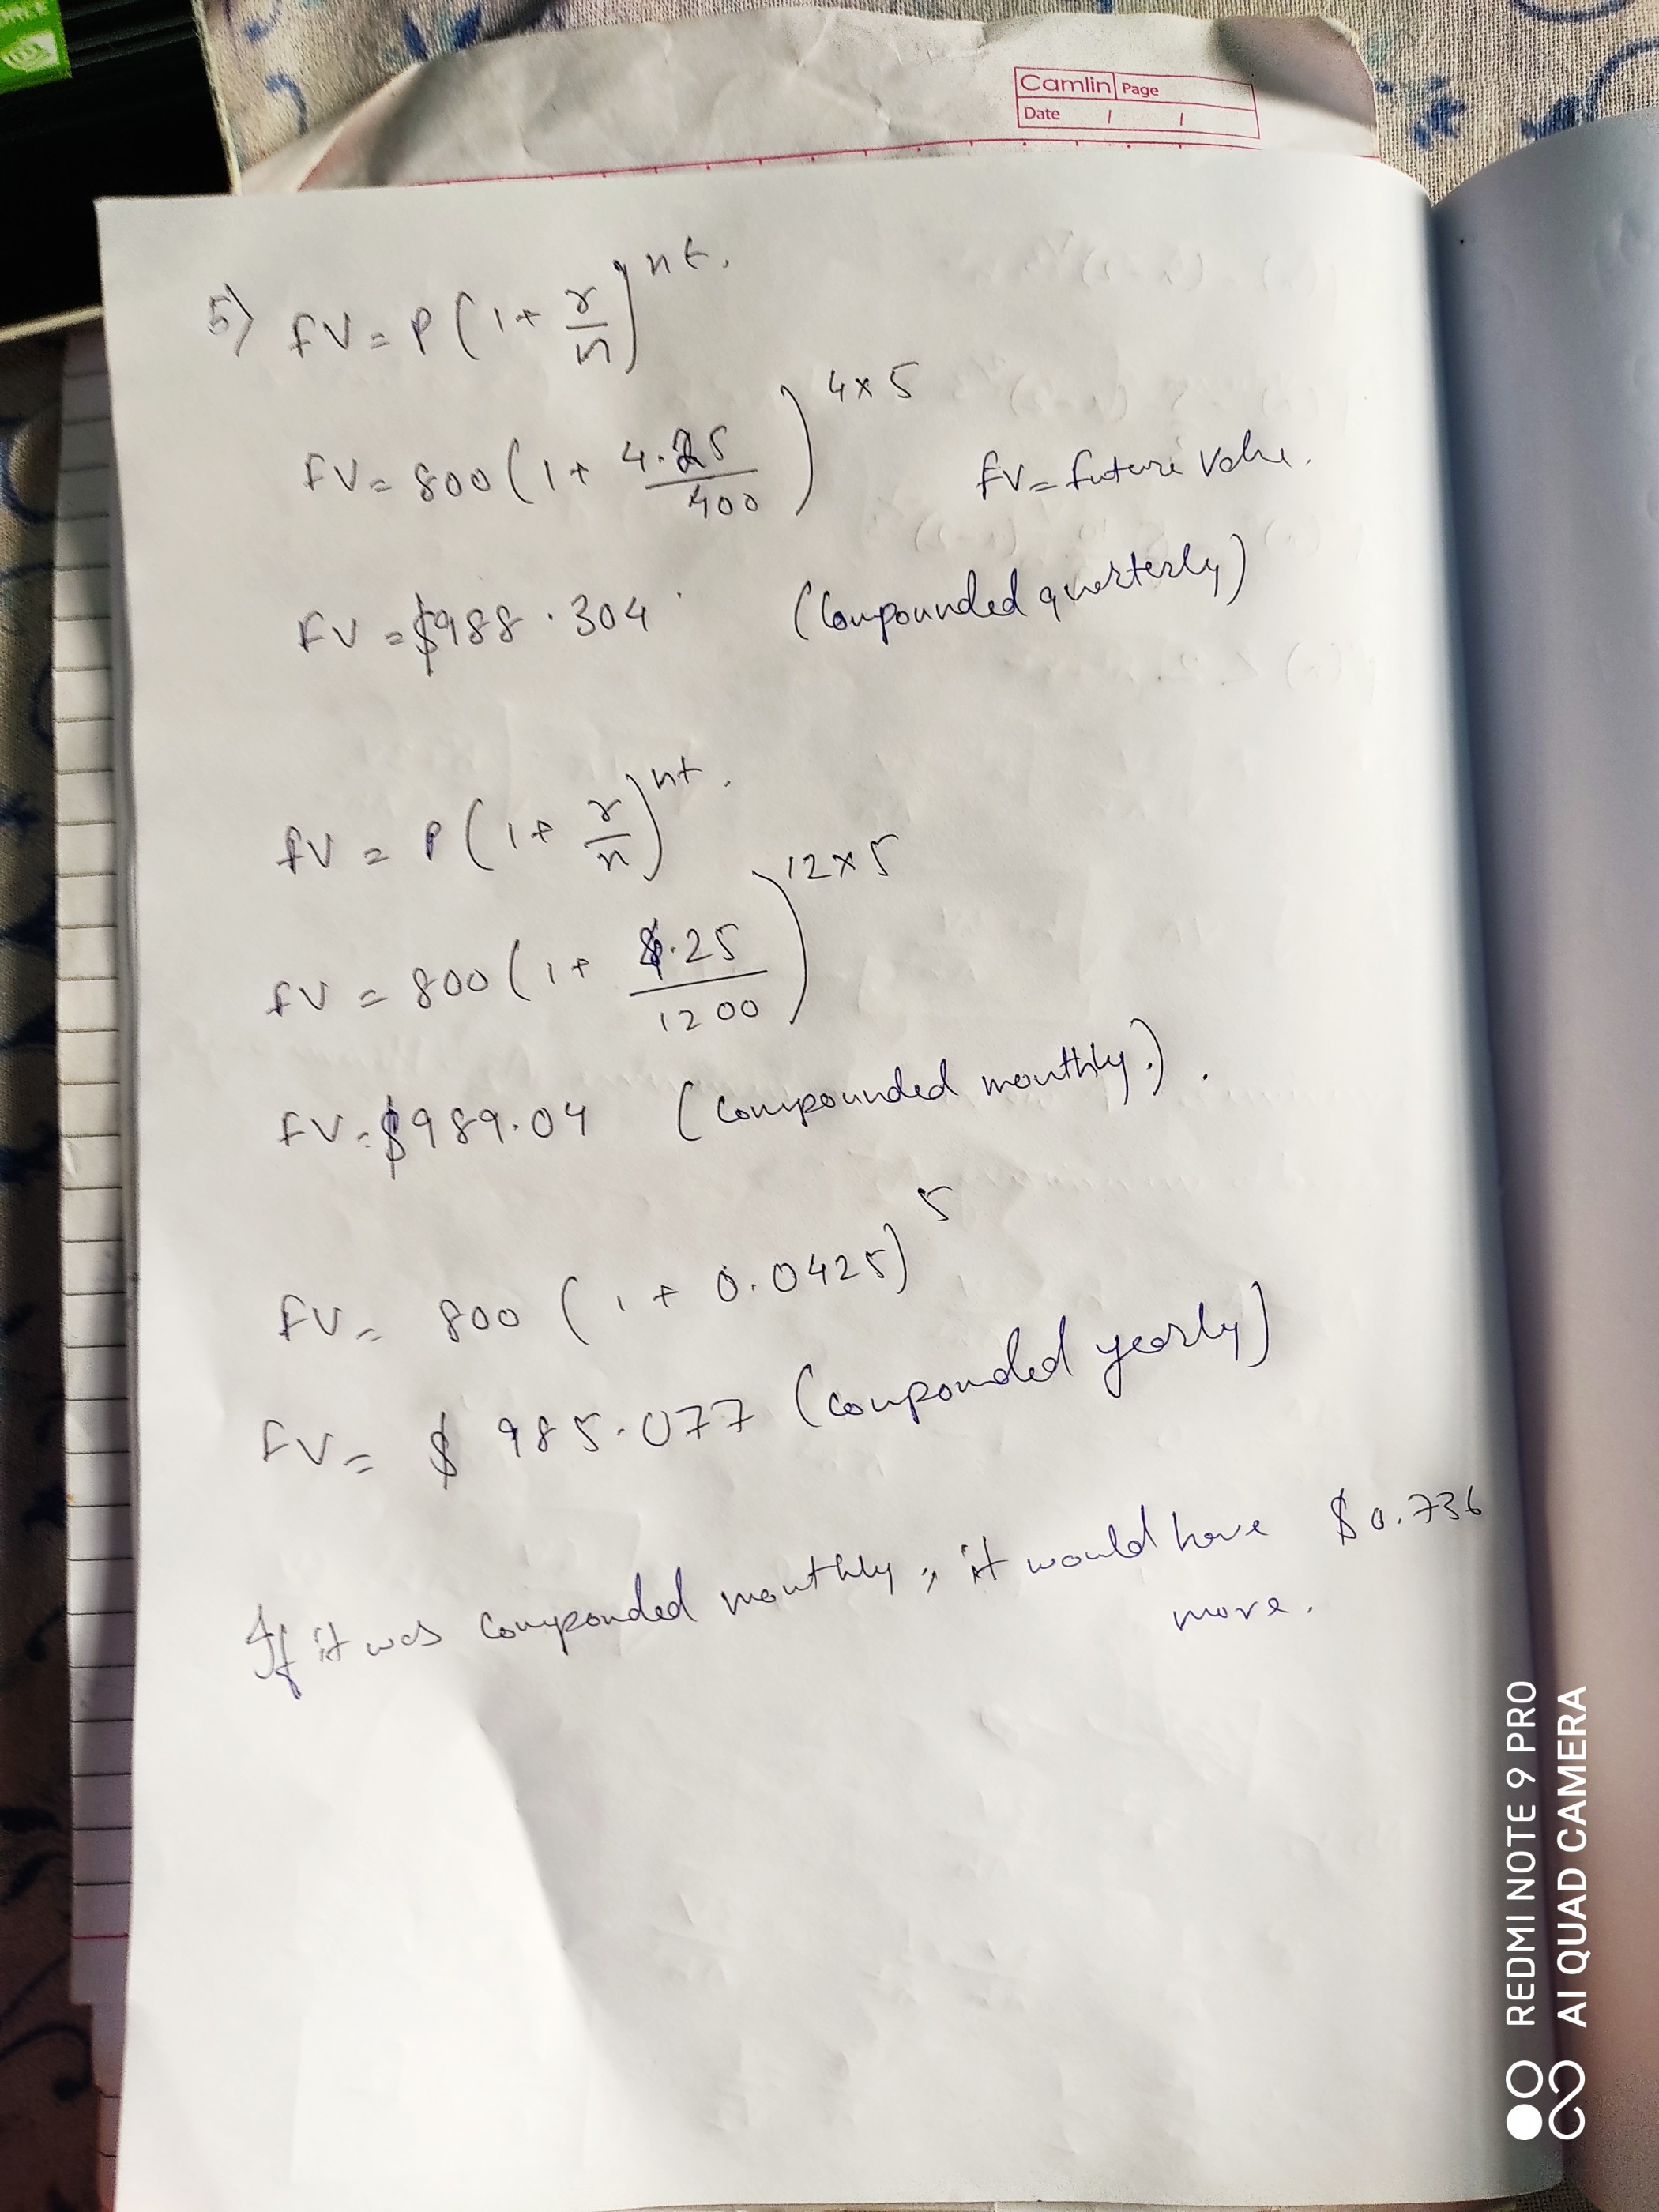 Camlin Page
Date / /
5) FV = P(1 + r/n)^nt.
FV = 800(1 + 4.25/400)^4×5
FV = future value.
FV = $988.304 (Compounded quarterly)
FV = P(1 + r/n)^nt.
FV = 800(1 + 4.25/1200)^12×5
FV = $989.04 (compounded monthly.).
FV = 800 (1 + 0.0425)^5
FV = $ 985.077 (compounded yearly)
If it was compounded monthly, it would have $0.736
more.
REDMI NOTE 9 PRO
AI QUAD CAMERA